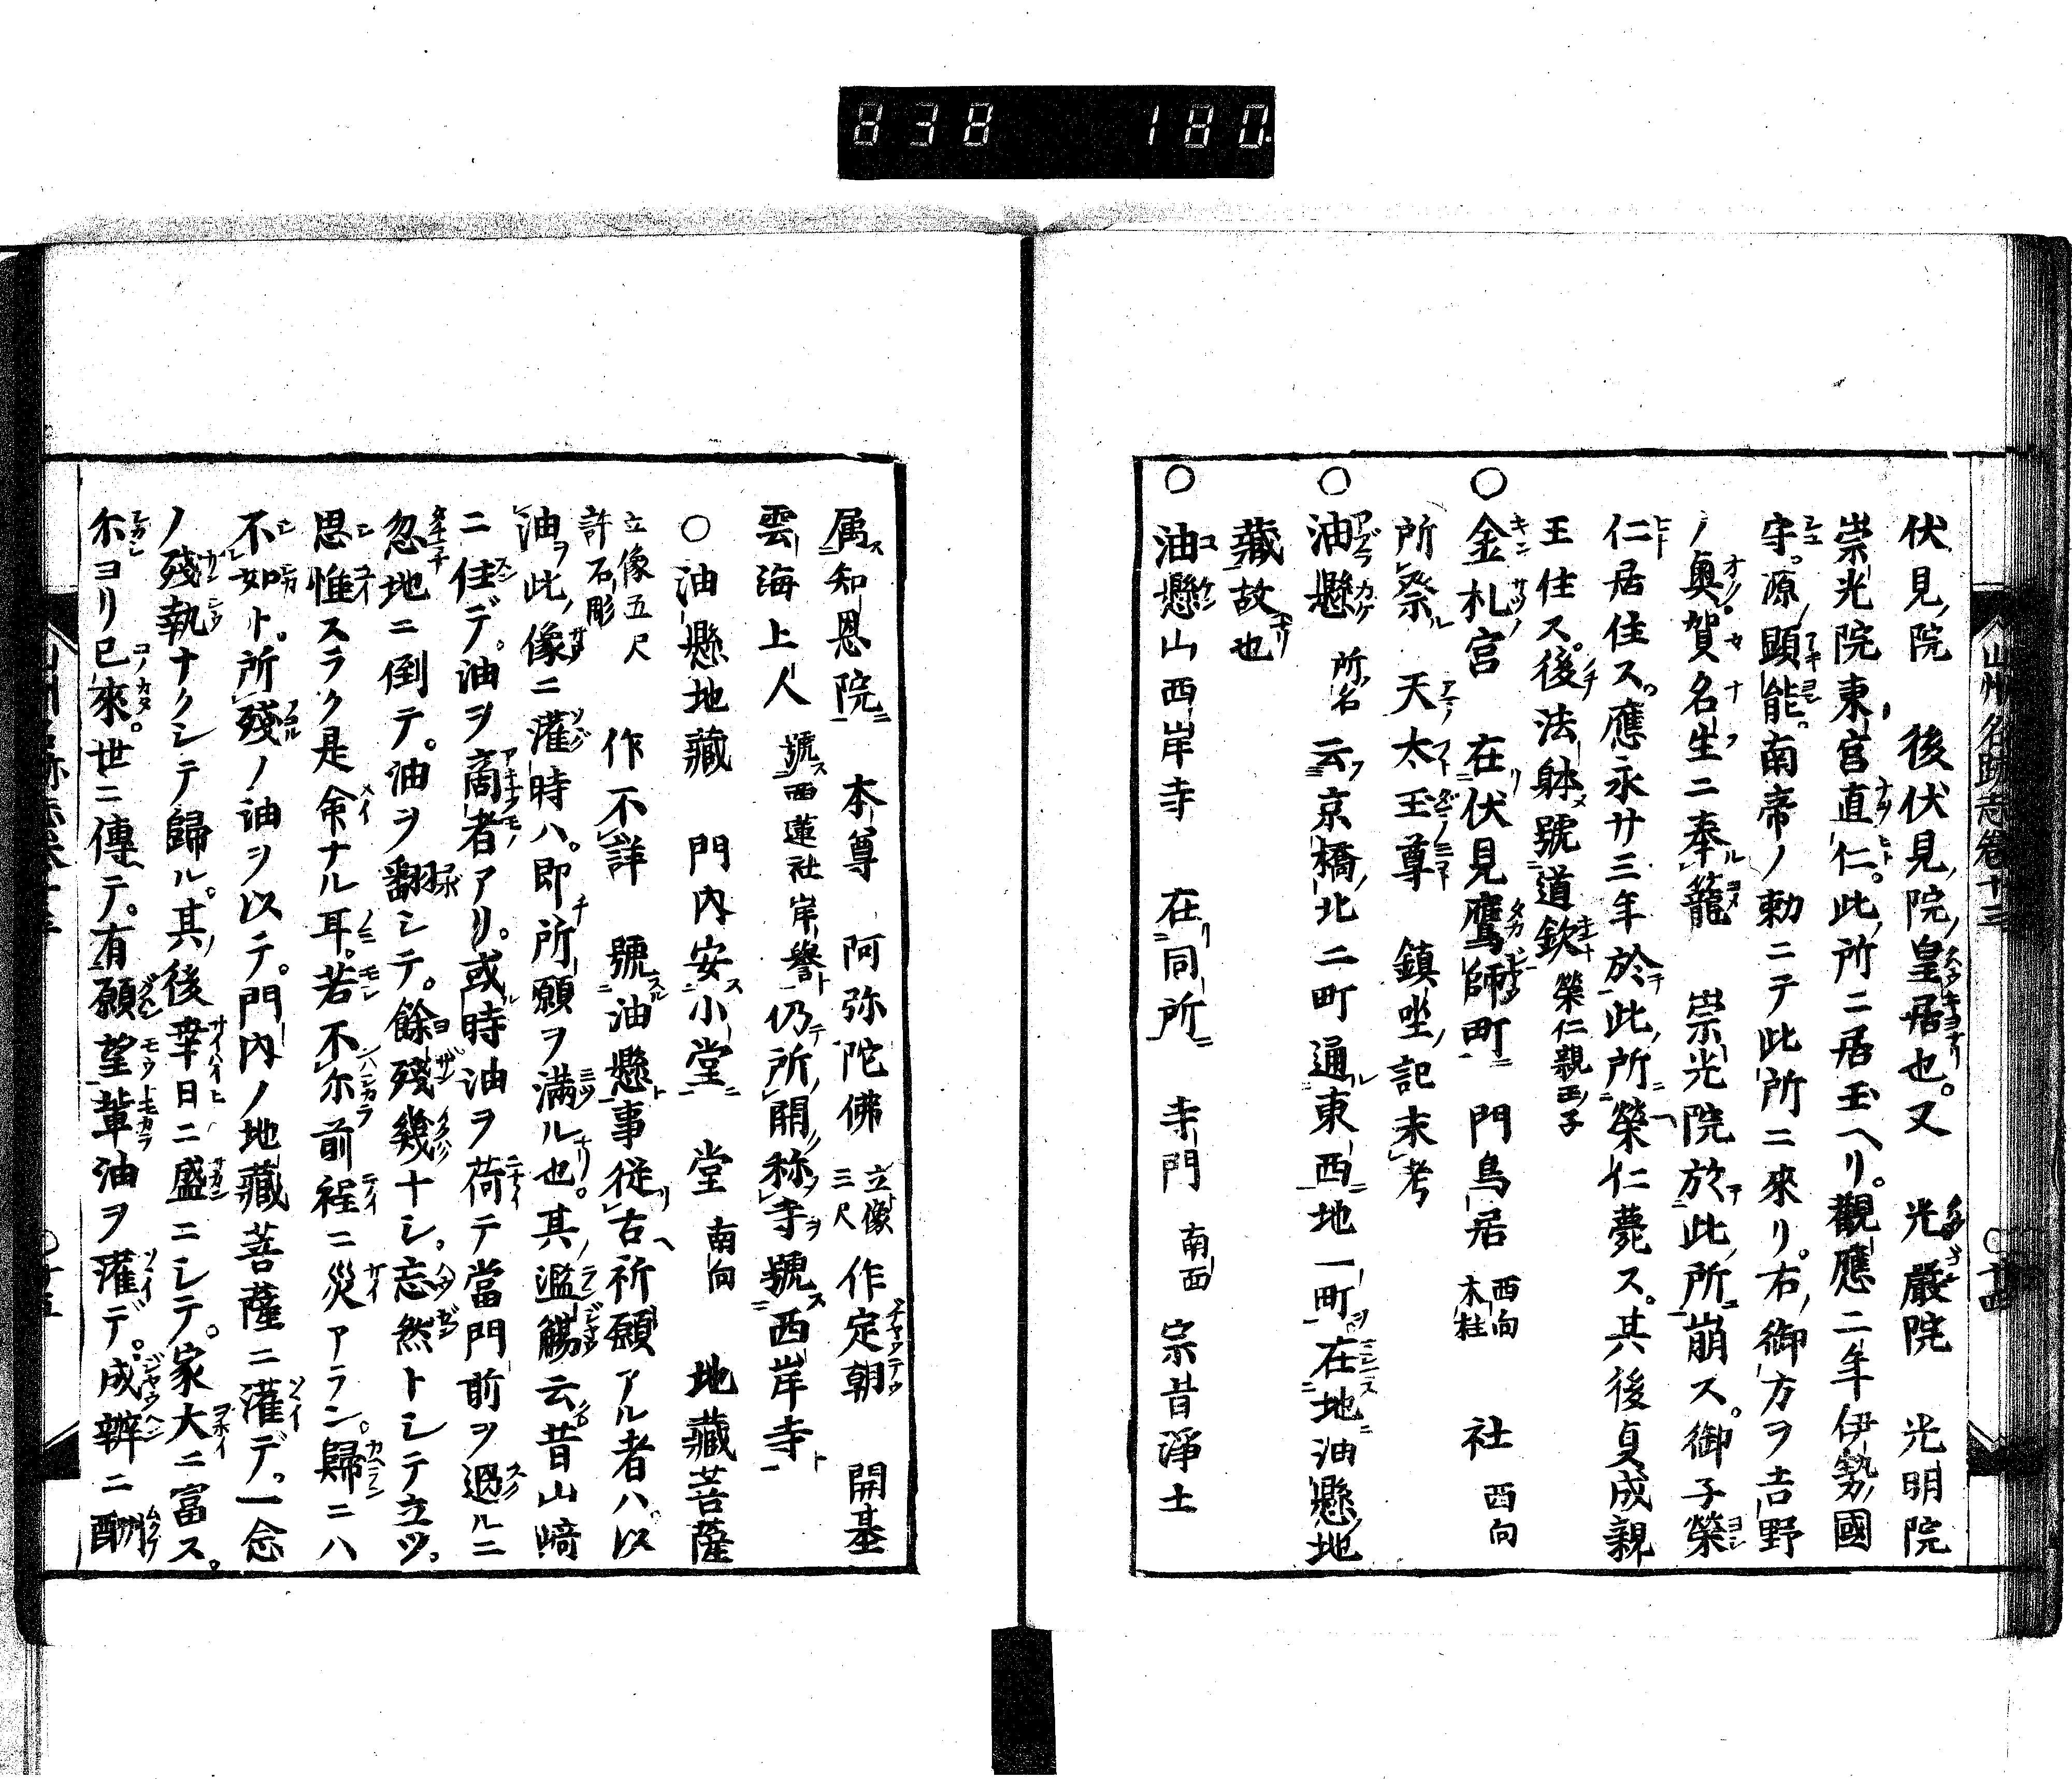 838 180
山州名跡志巻十三 〇十四
伏見院 後伏見院皇居也。又 光嚴院 光明院
崇光院東宮直仁。此所ニ居玉ヘリ。觀應二年伊勢國
守。源顕能。南帝ノ勅ニテ此所ニ來リ。右御方ヲ吉野
ノ奥賀名生ニ奉籠 崇光院於此所崩ス。御子榮
仁居住ス。應永廿三年於此所榮仁薨ス。其後貞成親
王住ス。後法躰號道欽 榮仁親王子
〇金札宮 在伏見鷹師町 門鳥居 西向木柱 社 西向
所祭 天太玉尊 鎮坐記未考
〇油懸 所名 云京橋北二町通東西地一町在地油懸地
藏故也
〇油懸山西岸寺 在同所 寺門 南面 宗旨淨土
属知恩院 本尊 阿弥陀佛 立像三尺 作定朝 開基
雲海上人 號西蓮社岸譽 仍所開称寺號西岸寺
〇油懸地藏 門内安小堂 堂 南向 地藏菩薩
立像五尺許石彫 作不詳 號油懸事従古祈願アル者ハ。以
油此像ニ灌時ハ。即所願ヲ満ル也。其濫觴云昔山﨑
ニ住デ。油ヲ商者アリ。或時油ヲ荷テ當門前ヲ過ルニ
忽地ニ倒テ。油ヲ翻シテ。餘殘幾十シ。忘然トシテ立ツ。
思惟スラク是命ナル耳。若不尓前程ニ災アラン。歸ニハ
不如ト。所殘ノ油ヲ以テ。門内ノ地藏菩薩ニ灌デ。一念
ノ殘執ナクシテ歸ル。其後幸日ニ盛ニシテ。家大ニ富ス。
尓ヨリ已來。世ニ傳テ。有願望輩油ヲ灌デ。成辨ニ酬